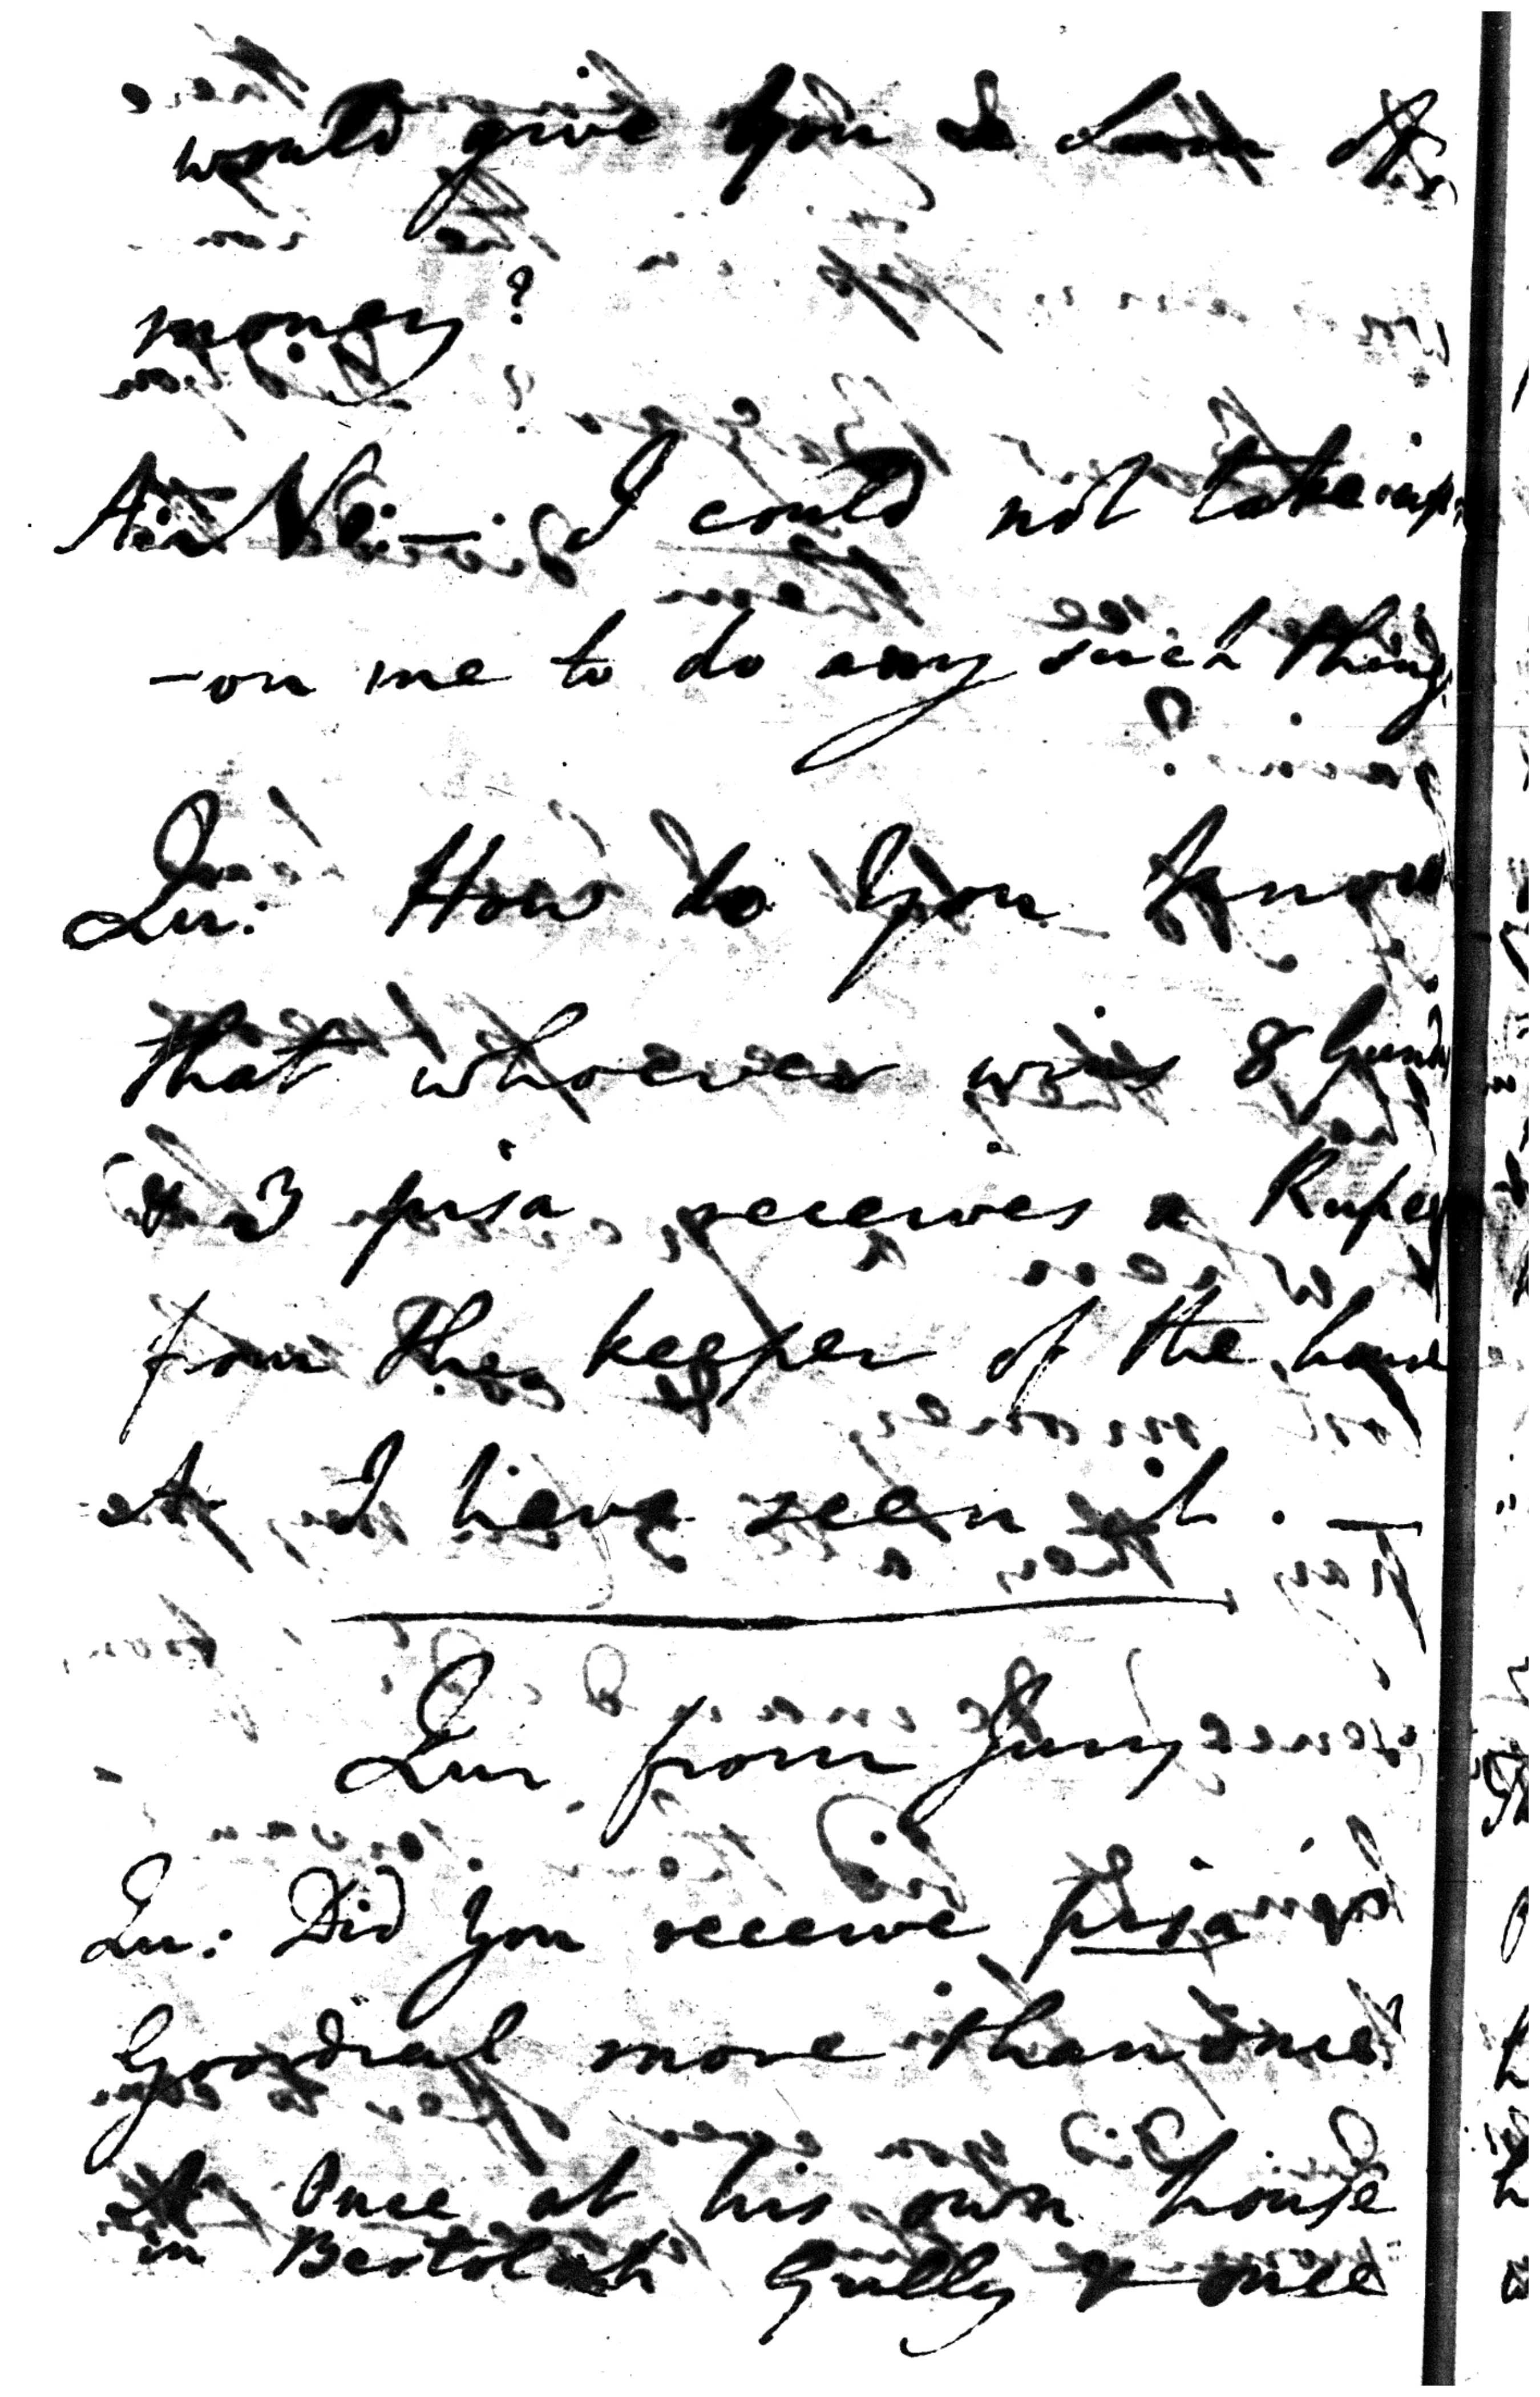 would give you a sum of
money?
An: No — I could not take up
- on me to do any such thing
Qu: How do you know
that whoever wins 8 Gunda
& 3 pisa receives a Rupee
from the keeper of the house
A I have seen it. —
Qu from Jury
Qu: Did you receive pisa
Goordial more than once
A Once at his own house
in Gully & once